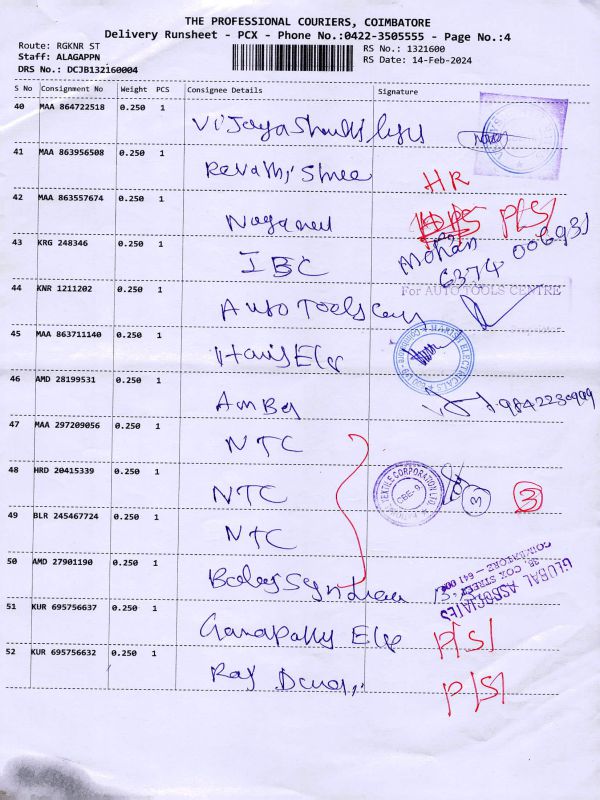 THE PROFESSIONAL COURIERS, COIMBATORE
Delivery Runsheet - PCX - Phone No.:0422-3505555 - Page No.:4
Route: RGKNR ST RS No.: 1321600
Staff: ALAGAPPN RS Date: 14-Feb-2024
DRS No.: DCJB132160004
S No Consignment No Weight PCS Consignee Details Signature
40 MAA 864722518 0.250 1
41 MAA 863956508 0.250 1 Revathi Shree HR
42 MAA 863557674 0.250 1 P/S/
43 KRG 248346 0.250 1 IBC Mohan 6374 006931
44 KNR 1211202 0.250 1 Auto Tools For AUTO TOOLS CENTRE
45 MAA 863711140 0.250 1 HARISH ELECTRICALS
46 AMD 28199531 0.250 1 Amber 9842230999
47 MAA 297209056 0.250 1 NTC
48 HRD 20415339 0.250 1 NTC TEXTILE CORPORATION LTD. CBE-9 3 3
49 BLR 245467724 0.250 1 NTC
50 AMD 27901190 0.250 1 GLOBAL ASSOCIATES
38, COX STREET
COIMBATORE - 641 001
51 KUR 695756637 0.250 1 Ganapathy Ele P/S/
52 KUR 695756632 0.250 1 Raj P/S/